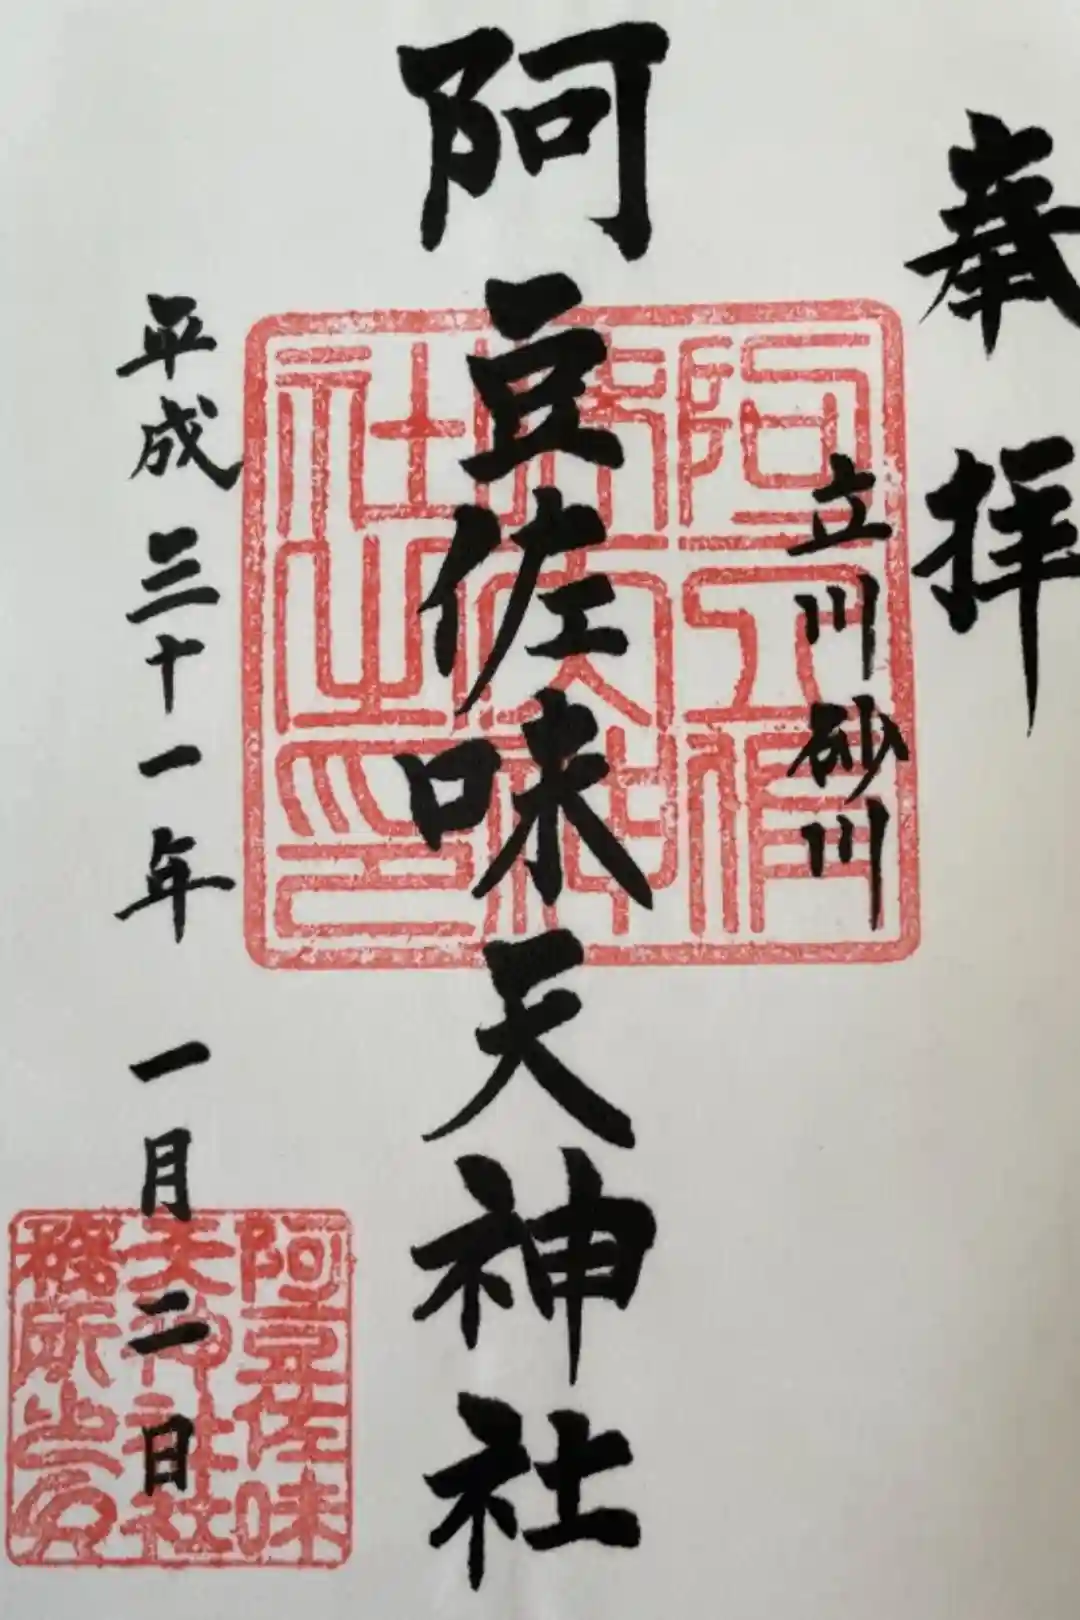 奉拝
立川砂川
阿豆佐味天神社
平成三十一年 一月二日
阿豆佐味
天神社社
務所之印